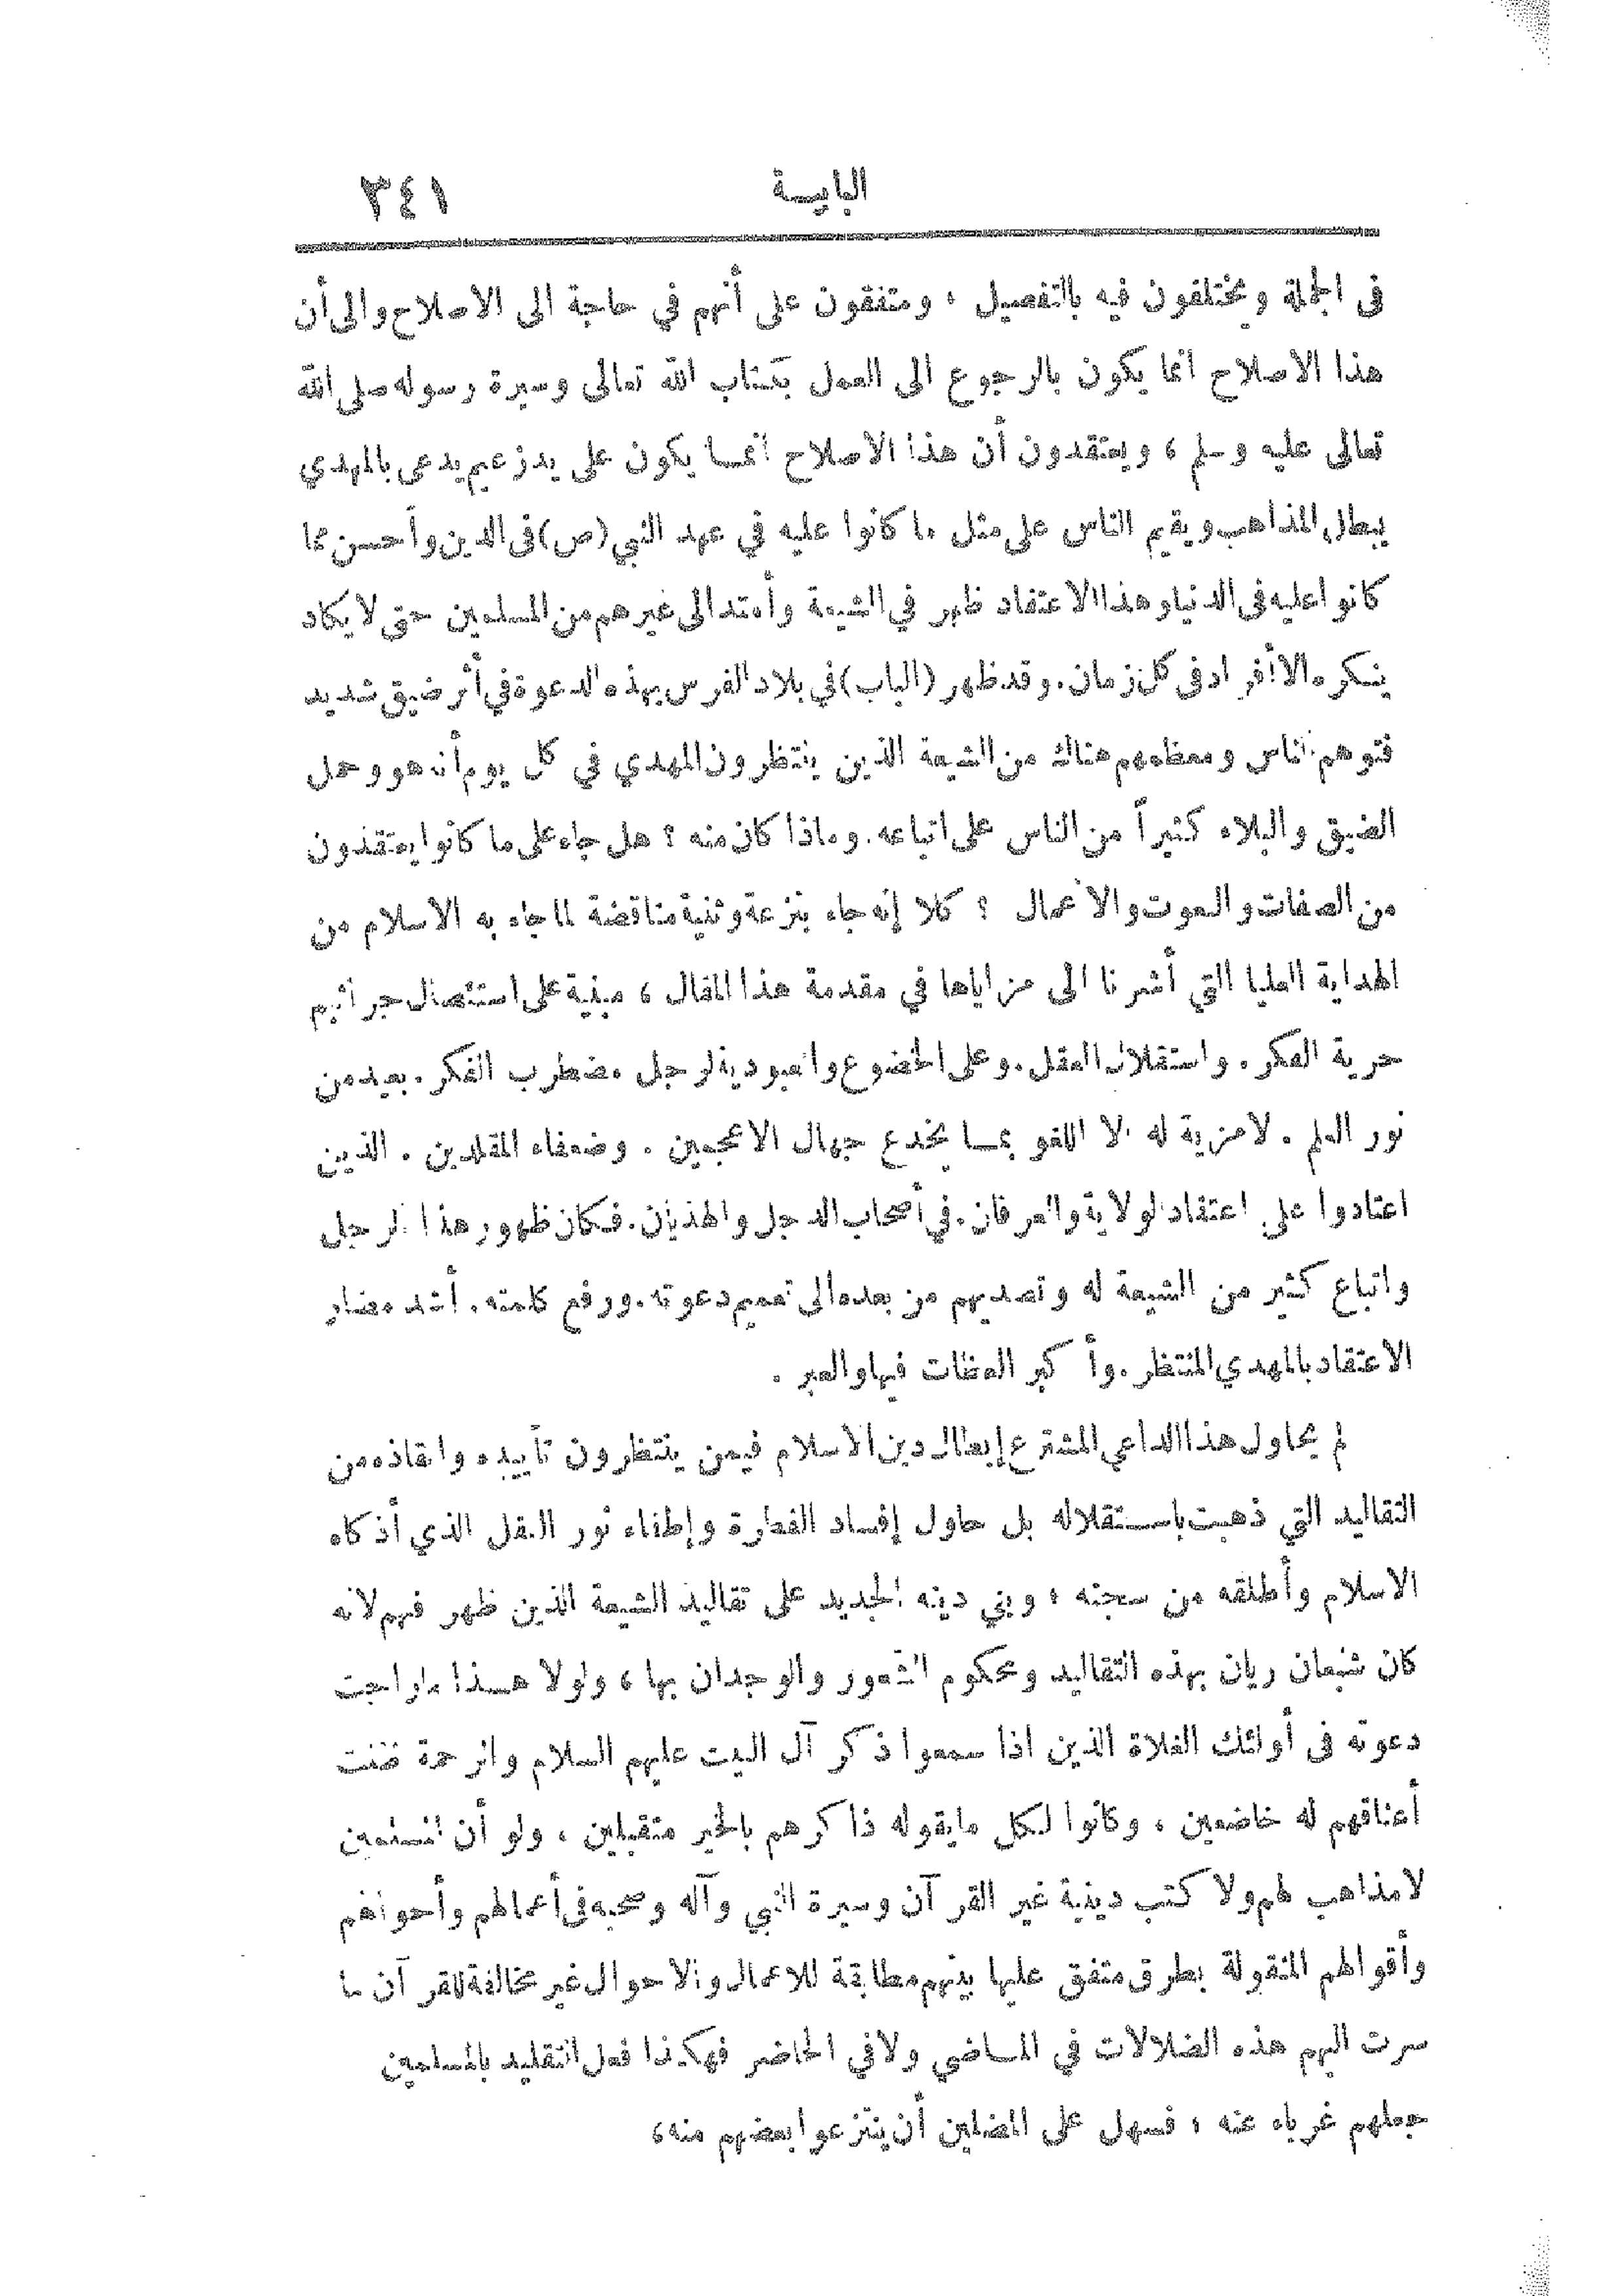 البابية ٣٤١
فى الجملة ويختلفون فيه بالتفصيل ، ومتفقون على أنهم في حاجة الى الاصلاح والى أن
هذا الاصلاح انما يكون بالرجوع الى العمل بكتاب الله تعالى وسيرة رسوله صلى الله
تعالى عليه وسلم ، ويعتقدون أن هذا الاصلاح انما يكون على يد زعيم يدعى بالمهدي
يبطل المذاهب ويقيم الناس على مثل ما كانوا عليه في عهد النبي (ص) فى الدين وأحسن مما
كانوا عليه فى الدنيا وهذا الاعتقاد ظهر في الشيعة وأمتد الى غيرهم من المسلمين حتى لا يكاد
ينكره الا أفراد فى كل زمان . وقد ظهر (الباب) في بلاد الفرس بهذه الدعوة في أثر ضيق شديد
فتوهم الناس ومعظمهم هناك من الشيعة الذين ينتظرون المهدي في كل يوم أنه هو وحمل
الضيق والبلاء كثيراً من الناس على اتباعه . وماذا كان منه ؟ هل جاء على ما كانوا يعتقدون
من الصفات والنعوت والاعمال ؟ كلا إنه جاء بنزعة وثنية مناقضة لما جاء به الاسلام من
الهداية العليا التي أشرنا الى مزاياها في مقدمة هذا المقال ، مبنية على استئصال جراثيم
حرية الفكر . واستقلال العقل . وعلى الخضوع والعبودية لرجل مضطرب الفكر . بعيد من
نور العلم . لا مزية له الا اللغو بما يخدع جهال الاعجمين . وضعفاء المقلدين . الذين
اعتادوا على اعتقاد الولاية والعرفان . في أصحاب الدجل والهذيان . فكان ظهور هذا الرجل
واتباع كثير من الشيعة له وتصديهم من بعده الى تعميم دعوته . ورفع كلمته . أشد مضار
الاعتقاد بالمهدي المنتظر . وأكبر العظات فيها والعبر .
لم يحاول هذا الداعي المشترع إبطال دين الاسلام فيمن ينتظرون تأييده وانقاذه من
التقاليد التي ذهبت باستقلاله بل حاول إفساد الفطرة وإطفاء نور العقل الذي أذكاه
الاسلام وأطلقه من سجنه ، وبني دينه الجديد على تقاليد الشيعة الذين ظهر فيهم لانه
كان شبعان ريان بهذه التقاليد ومحكوم الشعور والوجدان بها ، ولولا هذا ما راجت
دعوته فى أولئك الغلاة الذين اذا سمعوا ذكر آل البيت عليهم السلام والرحمة ظلت
أعناقهم له خاضعين ، وكانوا لكل ما يقوله ذاكرهم بالخير متقبلين ، ولو أن المسلمين
لا مذاهب لهم ولا كتب دينية غير القرآن وسيرة النبي وآله وصحبه فى أعمالهم وأحوالهم
وأقوالهم المنقولة بطرق متفق عليها بينهم مطابقة للاعمال والاحوال غير مخالفة للقرآن ما
سرت اليهم هذه الضلالات في الماضي ولا في الحاضر فهكذا فعل التقليد بالمسلمين
جعلهم غرباء عنه ، فسهل على المضلين أن ينتزعوا بعضهم منه ،